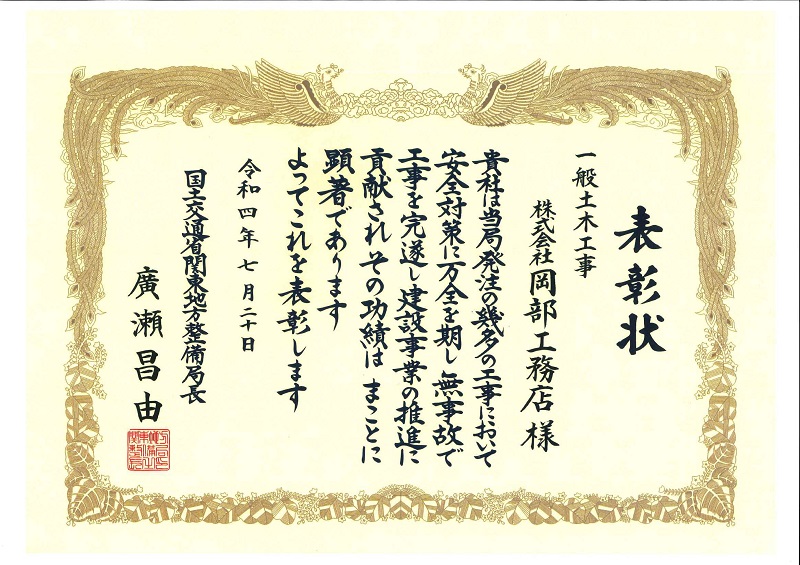 表彰状
一般土木工事
株式会社岡部工務店様
貴社は当局発注の幾多の工事において
安全対策に万全を期し無事故で
工事を完遂し建設事業の推進に
貢献されその功績はまことに
顕著であります
よってこれを表彰します
令和四年七月二十日
国土交通省関東地方整備局長
廣瀬昌由